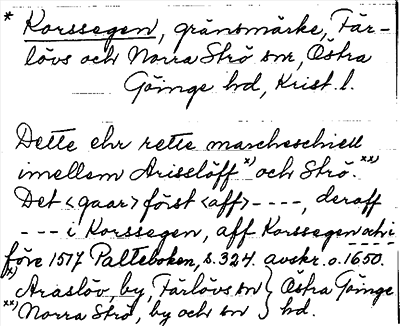 * Korssegen, gränsmärke, Fär-
lövs och Norra Strö snr, Östra
Göinge hd, Krist. l.
Dette ehr rette marcheschiell
imellem Arisslöff x) och Strö. xx)
Det <gaar> först <aff> ----, deraff
--- i Korssegen, aff Korssegen
före 1517 Palteboken, s. 324. avskr. o. 1650.
x) Araslöv by, Färlövs sn } Östra Göinge
xx) Norra Strö, by och sn } hd.